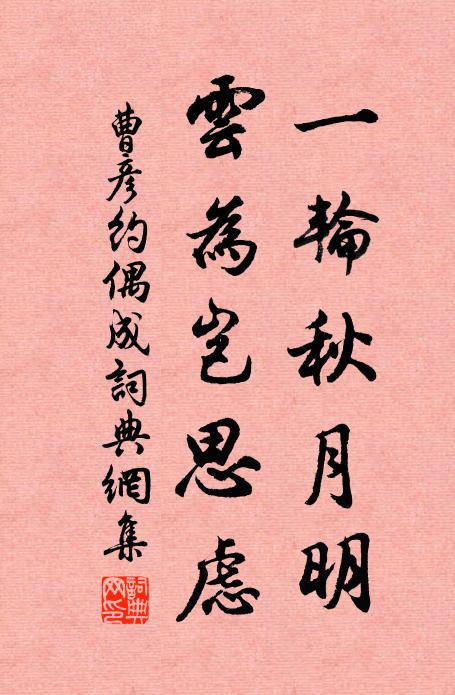 一輪秋月明
雲為豈思慮
曹彥約偶成詞典網集
詞典網印